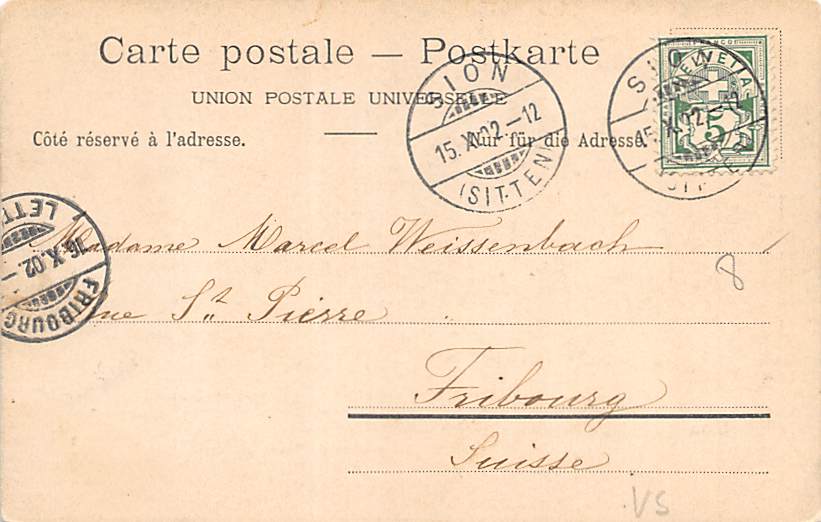 Carte postale — Postkarte
UNION POSTALE UNIVERSELLE
Côté réservé à l'adresse. Nur für die Adresse.
SION
15. X. 02 - 12
(SITTEN)
SION
15. X. 02 - 12
(SITTEN)
FRANCO
HELVETIA
5
LETT
16. X. 02. -
FRIBOURG
Madame Marcel Weissenbach
Rue St. Pierre
Fribourg
Suisse
8
VS